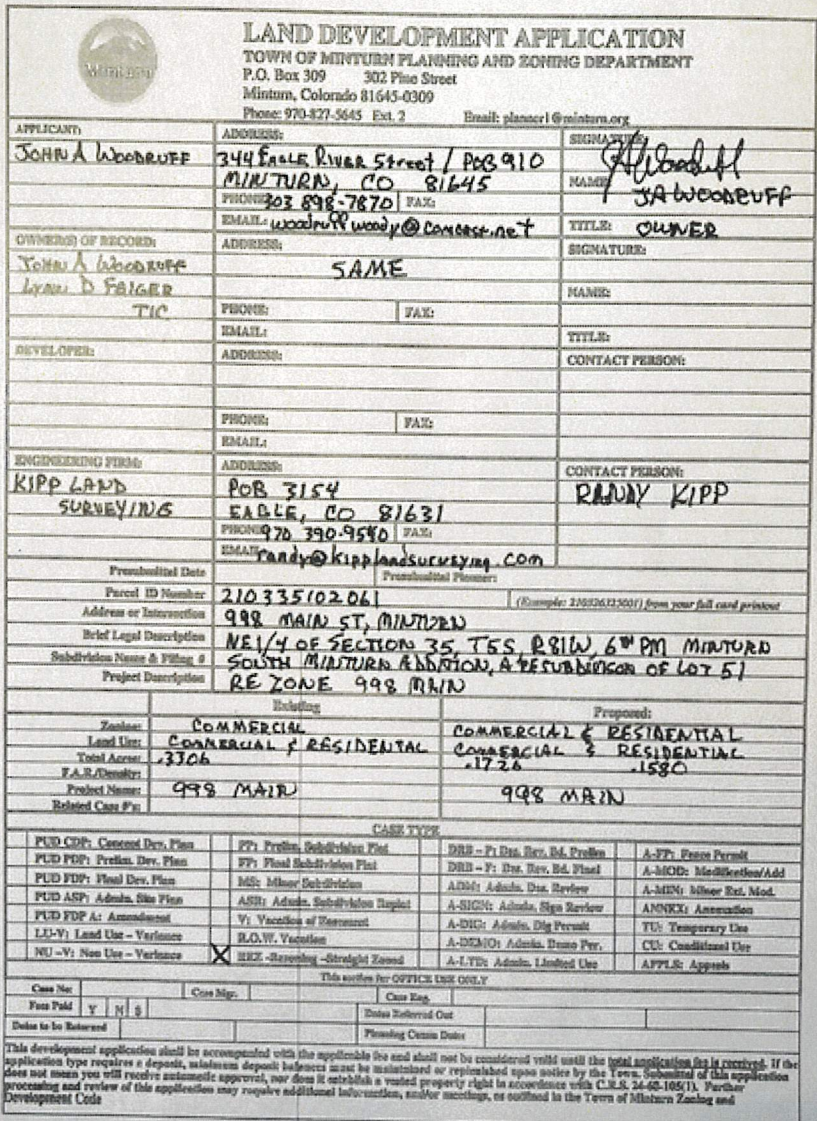 Minturn
LAND DEVELOPMENT APPLICATION
TOWN OF MINTURN PLANNING AND ZONING DEPARTMENT
P.O. Box 309 302 Pine Street
Minturn, Colorado 81645-0309
Phone: 970-827-5645 Ext. 2 Email: planner1@minturn.org
APPLICANT: ADDRESS: SIGNATURE:
JOHN A WOODRUFF 344 EAGLE RIVER Street / POB 910 JAWoodruff
MINTURN, CO 81645 NAME: JA WOODRUFF
PHONE: 303 898-7870 FAX:
EMAIL: woodruffwoody@comcast.net TITLE: OWNER
OWNER(S) OF RECORD: ADDRESS: SIGNATURE:
JOHN A WOODRUFF SAME
LYNN D FEIGER NAME:
TIC PHONE: FAX:
EMAIL: TITLE:
DEVELOPER: ADDRESS: CONTACT PERSON:
PHONE: FAX:
EMAIL:
ENGINEERING FIRM: ADDRESS: CONTACT PERSON:
KIPP LAND POB 3154 RANDY KIPP
SURVEYING EAGLE, CO 81631
PHONE: 970 390-9540 FAX:
EMAIL: randy@kipplandsurveying.com
Presubmittal Date Presubmittal Planner:
Parcel ID Number 210335102061 (Example: 210326323001) from your full card printout
Address or Intersection 998 MAIN ST, MINTURN
Brief Legal Description NE1/4 OF SECTION 35, T5S, R81W, 6TH PM MINTURN
Subdivision Name & Filing # SOUTH MINTURN ADDITION, A RESUBDIVISON OF LOT 51
Project Description RE ZONE 998 MAIN
Existing Proposed:
Zoning: COMMERCIAL COMMERCIAL & RESIDENTIAL
Land Use: COMMERCIAL & RESIDENTAL COMMERCIAL & RESIDENTIAL
Total Acres: .3306 .1726 .1580
F.A.R./Density:
Project Name: 998 MAIN 998 MAIN
Related Case #'s:
CASE TYPE
PUD CDP: Concept Dev. Plan PP: Prelim. Subdivision Plat DRB – P: Dsn. Rev. Bd. Prelim A-FP: Fence Permit
PUD PDP: Prelim. Dev. Plan FP: Final Subdivision Plat DRB – F: Dsn. Rev. Bd. Final A-MOD: Modification/Add
PUD FDP: Final Dev. Plan MS: Minor Subdivision ADM: Admin. Dsn. Review A-MIN: Minor Ext. Mod.
PUD ASP: Admin. Site Plan ASR: Admin. Subdivision Replat A-SIGN: Admin. Sign Review ANNEX: Annexation
PUD FDP A: Amendment V: Vacation of Easement A-DIG: Admin. Dig Permit TU: Temporary Use
LU-V: Land Use – Variance R.O.W. Vacation A-DEMO: Admin. Demo Per. CU: Conditional Use
NU –V: Non Use – Variance X REZ –Rezoning –Straight Zoned A-LTD: Admin. Limited Use APPLS: Appeals
This section for OFFICE USE ONLY
Case No: Case Mgr. Case Eng.
Fees Paid Y N $ Dates Referred Out
Dates to be Returned Planning Comm Dates
This development application shall be accompanied with the applicable fee and shall not be considered valid until the total application fee is received. If the
application type requires a deposit, minimum deposit balances must be maintained or replenished upon notice by the Town. Submittal of this application
does not mean you will receive automatic approval, nor does it establish a vested property right in accordance with C.R.S. 24-68-105(1). Further
processing and review of this application may require additional information, and/or meetings, as outlined in the Town of Minturn Zoning and
Development Code